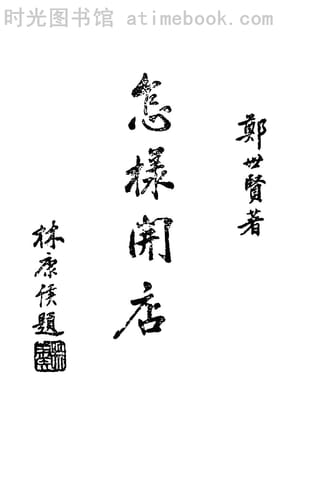 时光图书馆 atimebook.com
鄭世賢著
怎樣開店
林康侯題